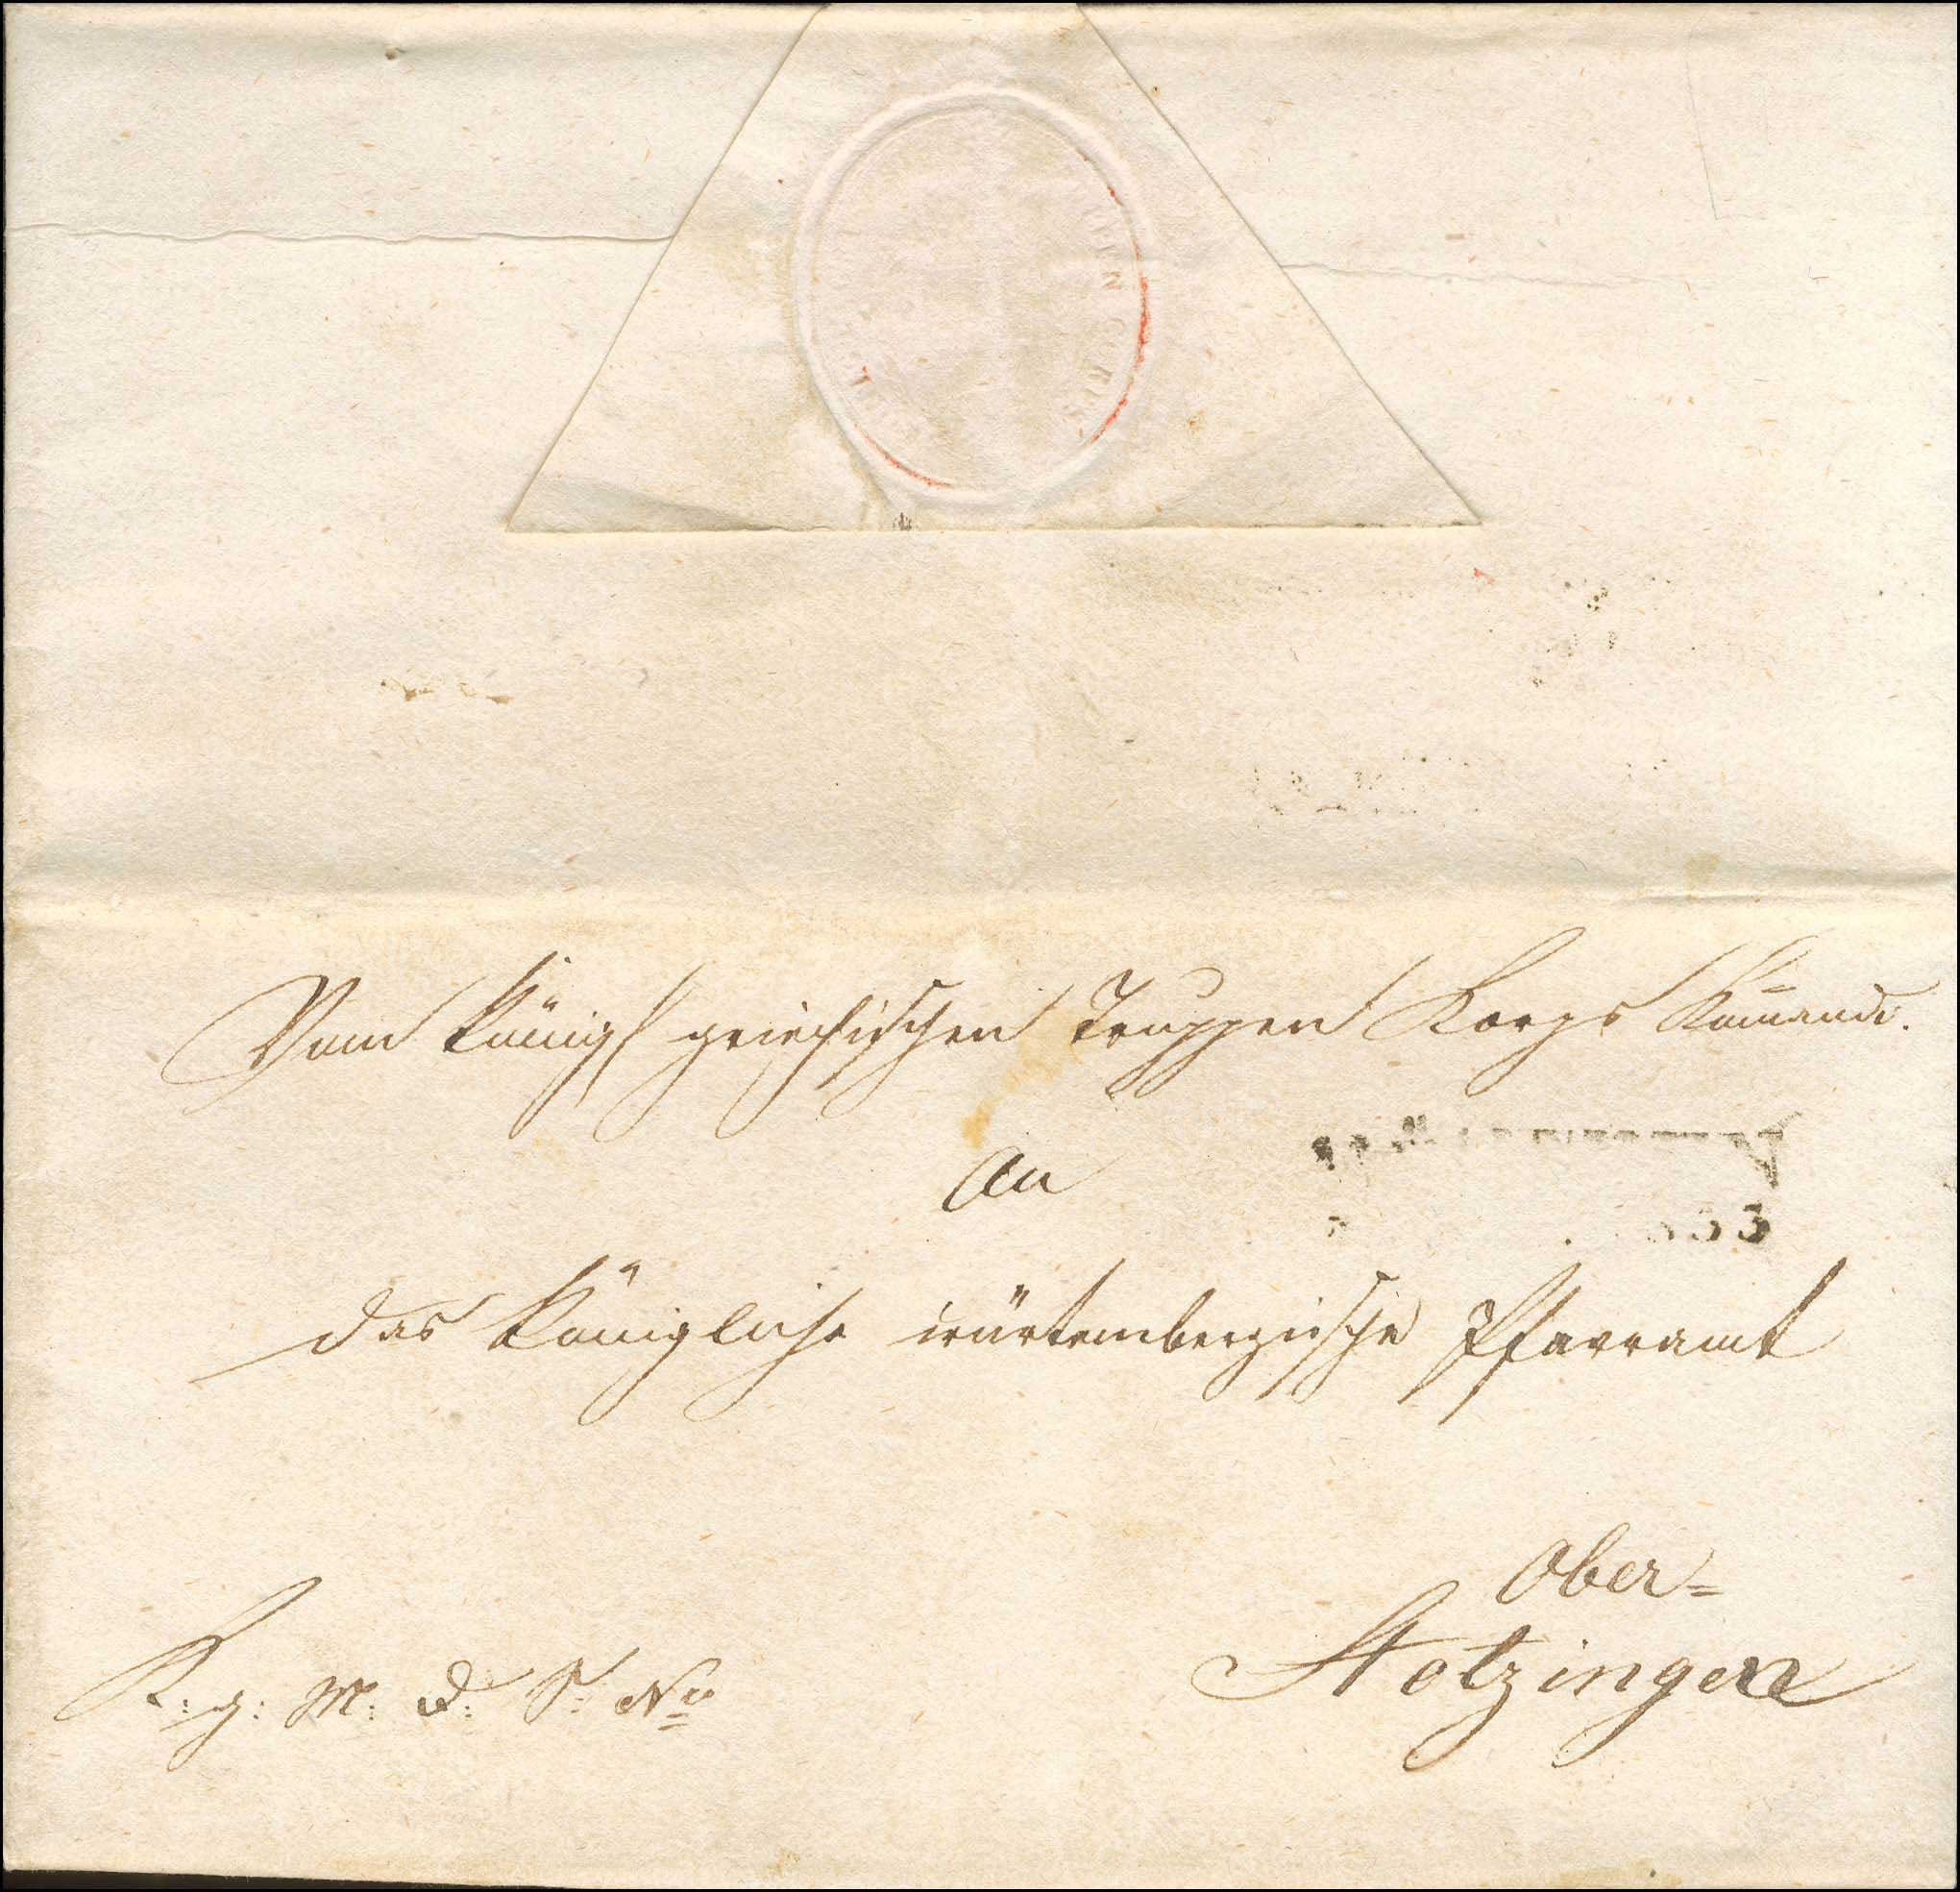 Vom Königl griechischen Truppen Korps Kom̄ando.
An
das Königliche würtembergische Pfarramt
Ober=
Stotzingen
K: g: M: D: S: No